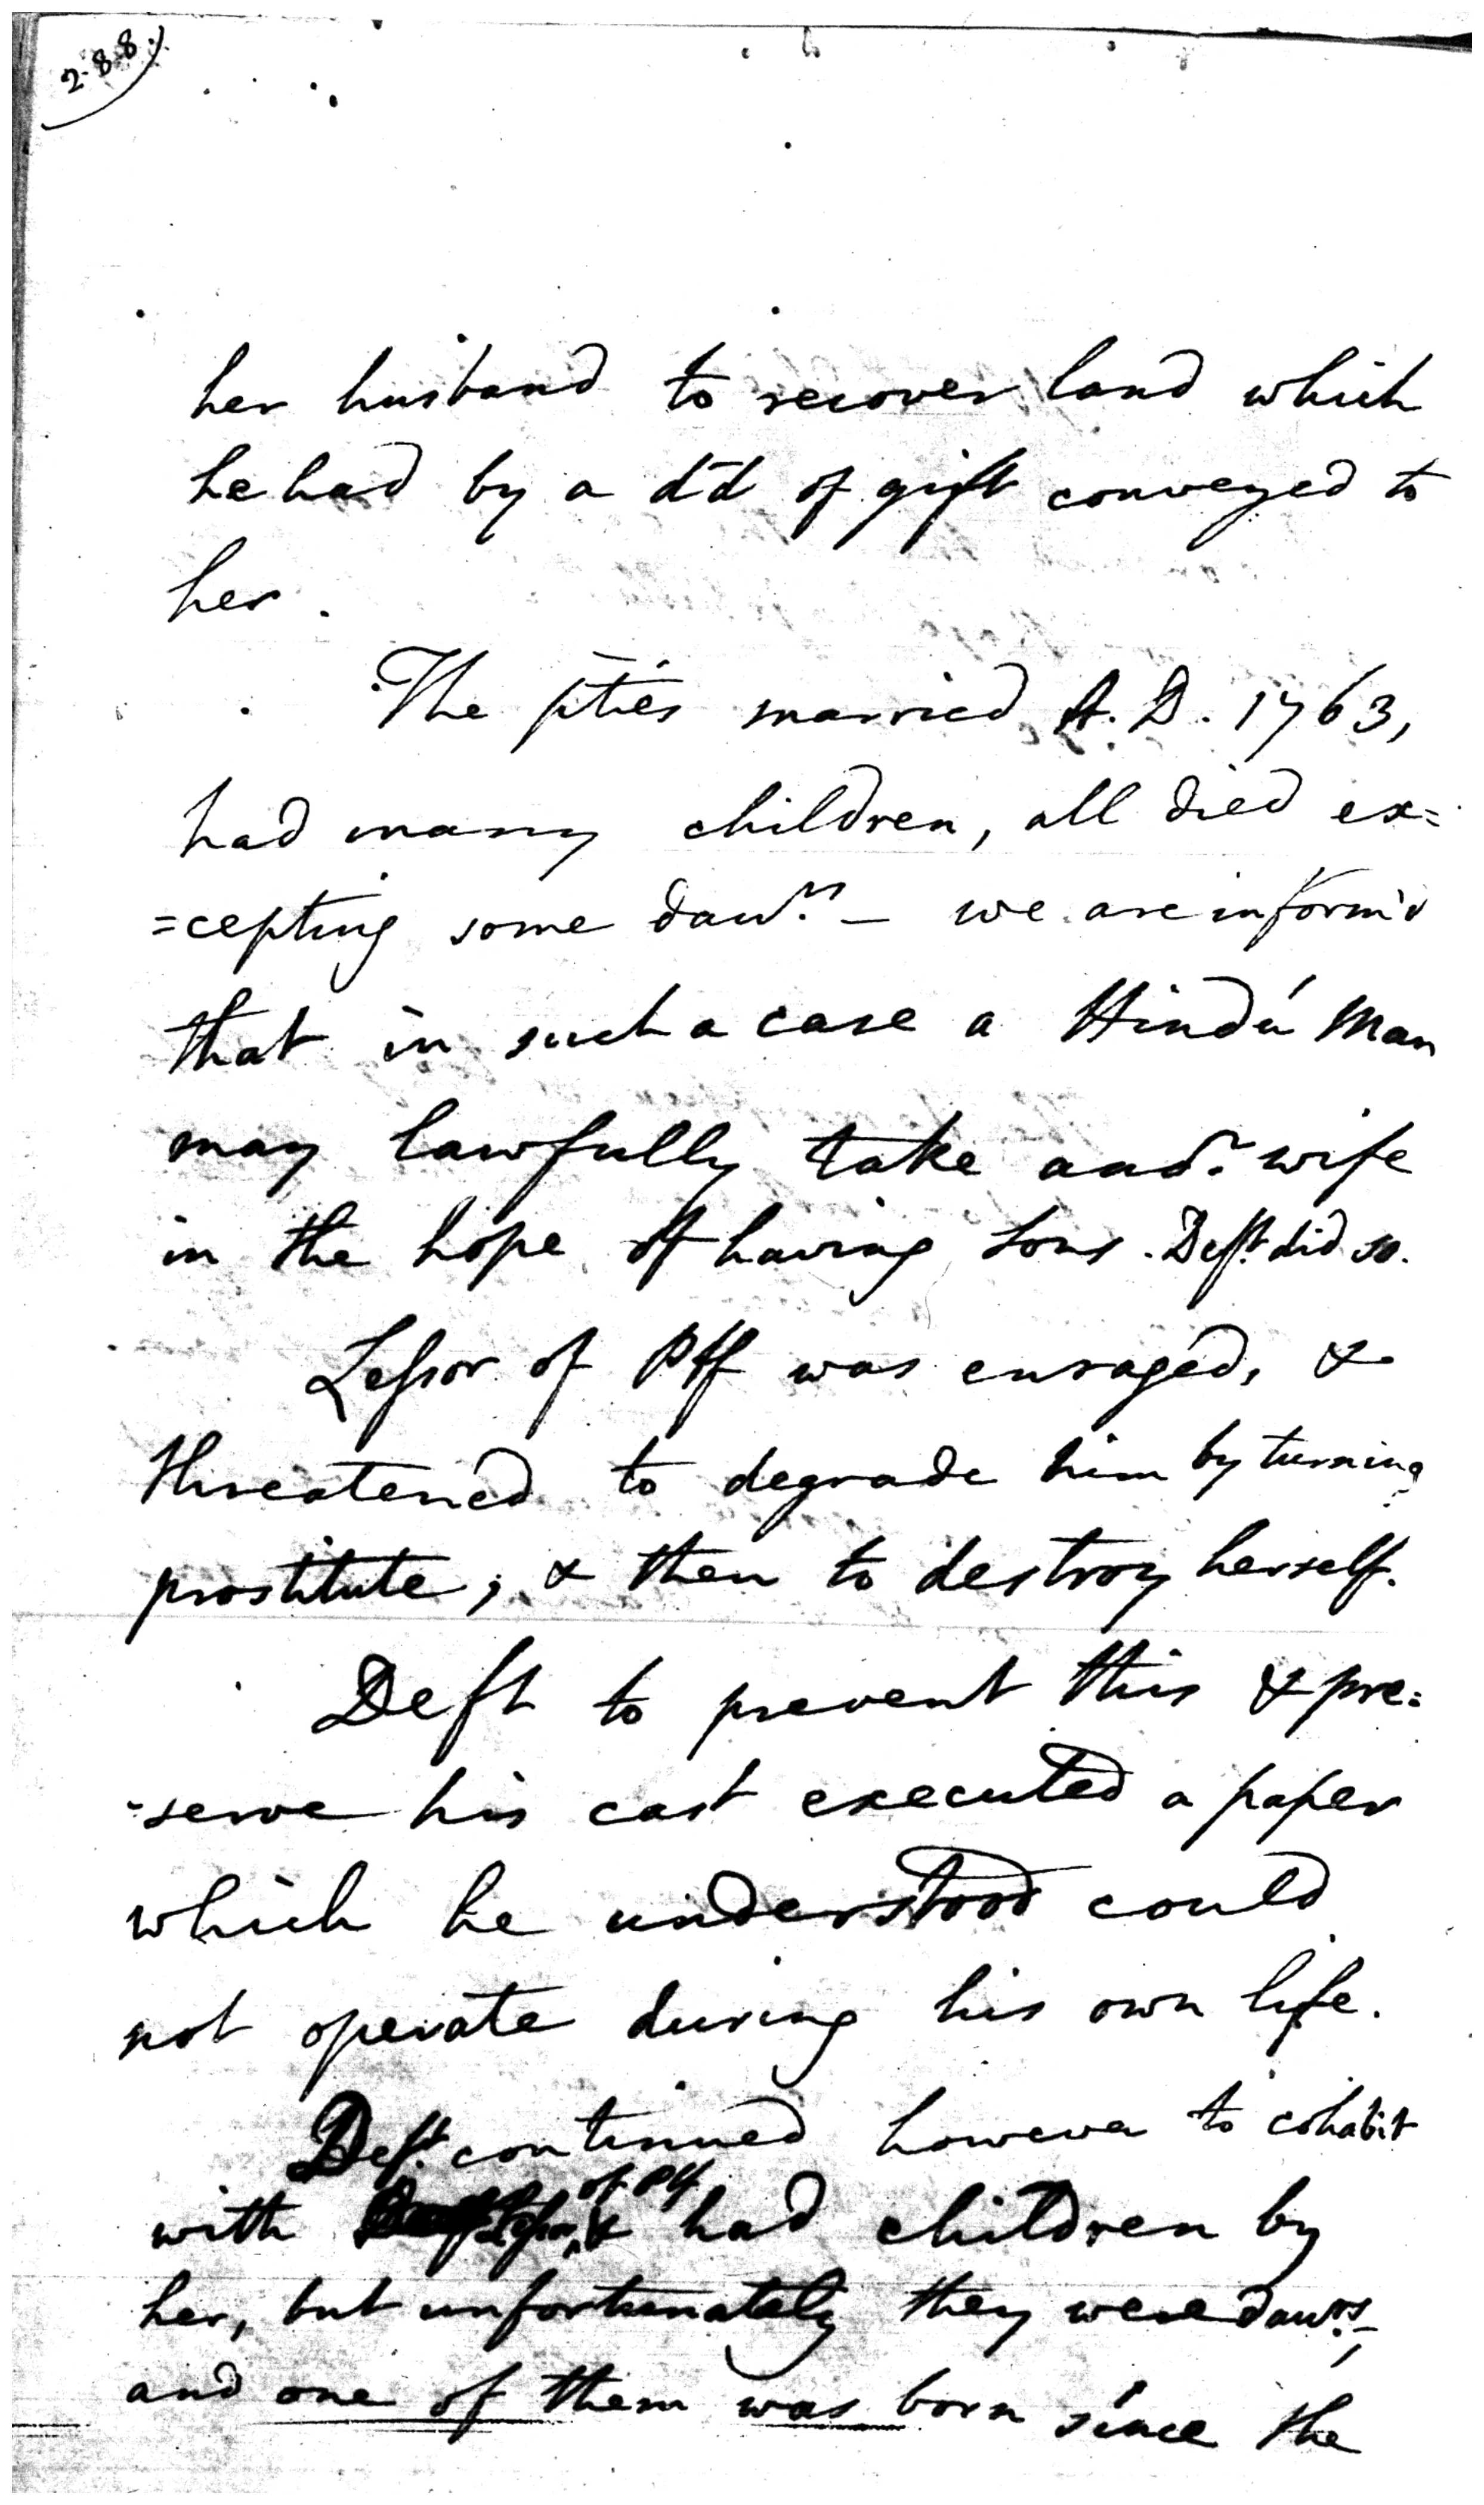 288
her husband to recover land which
he had by a d̄d of gift conveyed to
her.
The p̄ties married A.D. 1763,
had many children, all died ex=
=cepting some dawrs — we are inform'd
that in such a case a Hindú man
may lawfully take anor wife
in the hope of having sons. Deft. did so.
Lessor of Plff was enraged, &
threatened to degrade him by turning
prostitute; & then to destroy herself.
Deft to prevent this & pre=
-serve his cast executed a paper
which he understood could
not operate during his own life.
Deft. continued however to cohabit
of Plf
with Lessor, & had children by
her, but unfortunately they were dawrs.,
and one of them was born since the